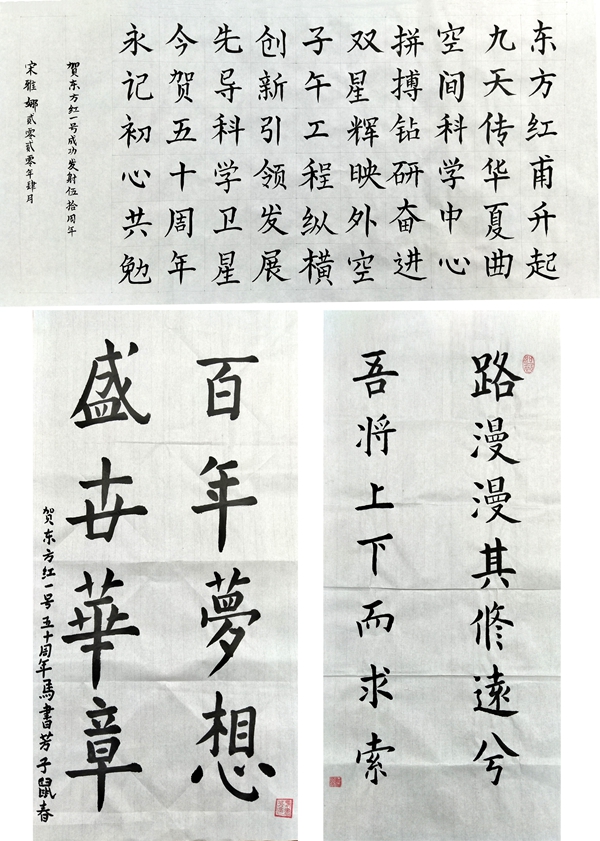 东方红甫升起
九天传华夏曲
空间科学中心
拼搏钻研奋进
双星辉映外空
子午工程纵横
创新引领发展
先导科学卫星
今贺五十周年
永记初心共勉
賀东方红一号成功发射伍拾周年
宋雅娜貳零貳零年肆月
百年夢想
盛世華章
贺东方红一号五十周年馬書芳子鼠春
路漫漫其修遠兮
吾将上下而求索